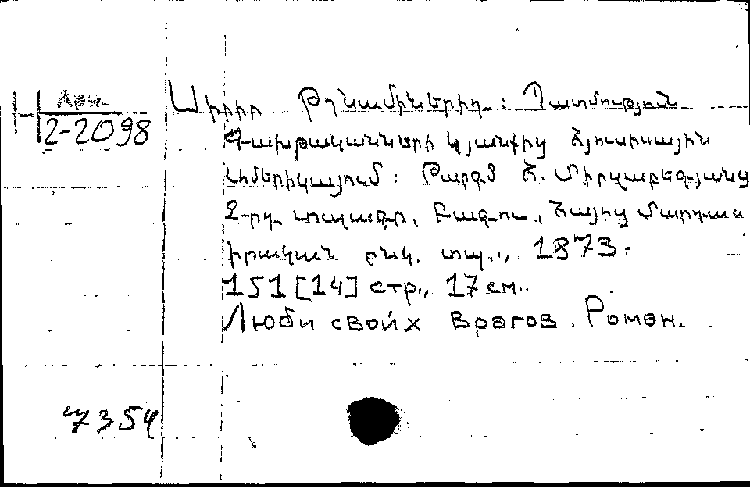 Н Арм.
2-2098
Սիրիր թշնամիներիդ: Պատմութիւն
Գաղթականների կյանքից Հյուսիսային
Ամերիկայում: Թարգմ Ն. Միրզաբեգյանց
2-րդ տպագր. Բագու.,
իրական ընկ. տպ., 1873.
151 [14] стр., 17 см.
Люби своих врагов. Роман.
7354